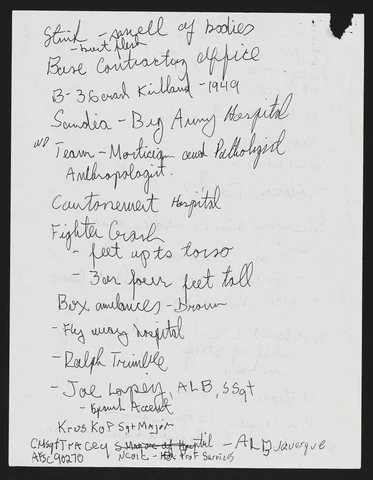 Stink - smell of bodies
- burnt flesh
Base Contracting office
B-36 crash Kirtland - 1949
Sandia - Big Army Hospital
Team - Mortician and Pathologist
Anthropologist.
Cantonement Hospital
Fighter Crash
- feet up to torso
- 3 or four feet tall
Box ambulances - Brown
- Fly away hospital
- Ralph Trimble
- Joe Lopez, ALB, SSgt
- Spanish Accent
KrusKoP Sgt Major
CMsgt Tracey - ALBquerque
AFSC 90270 NCOIC - Prof Services